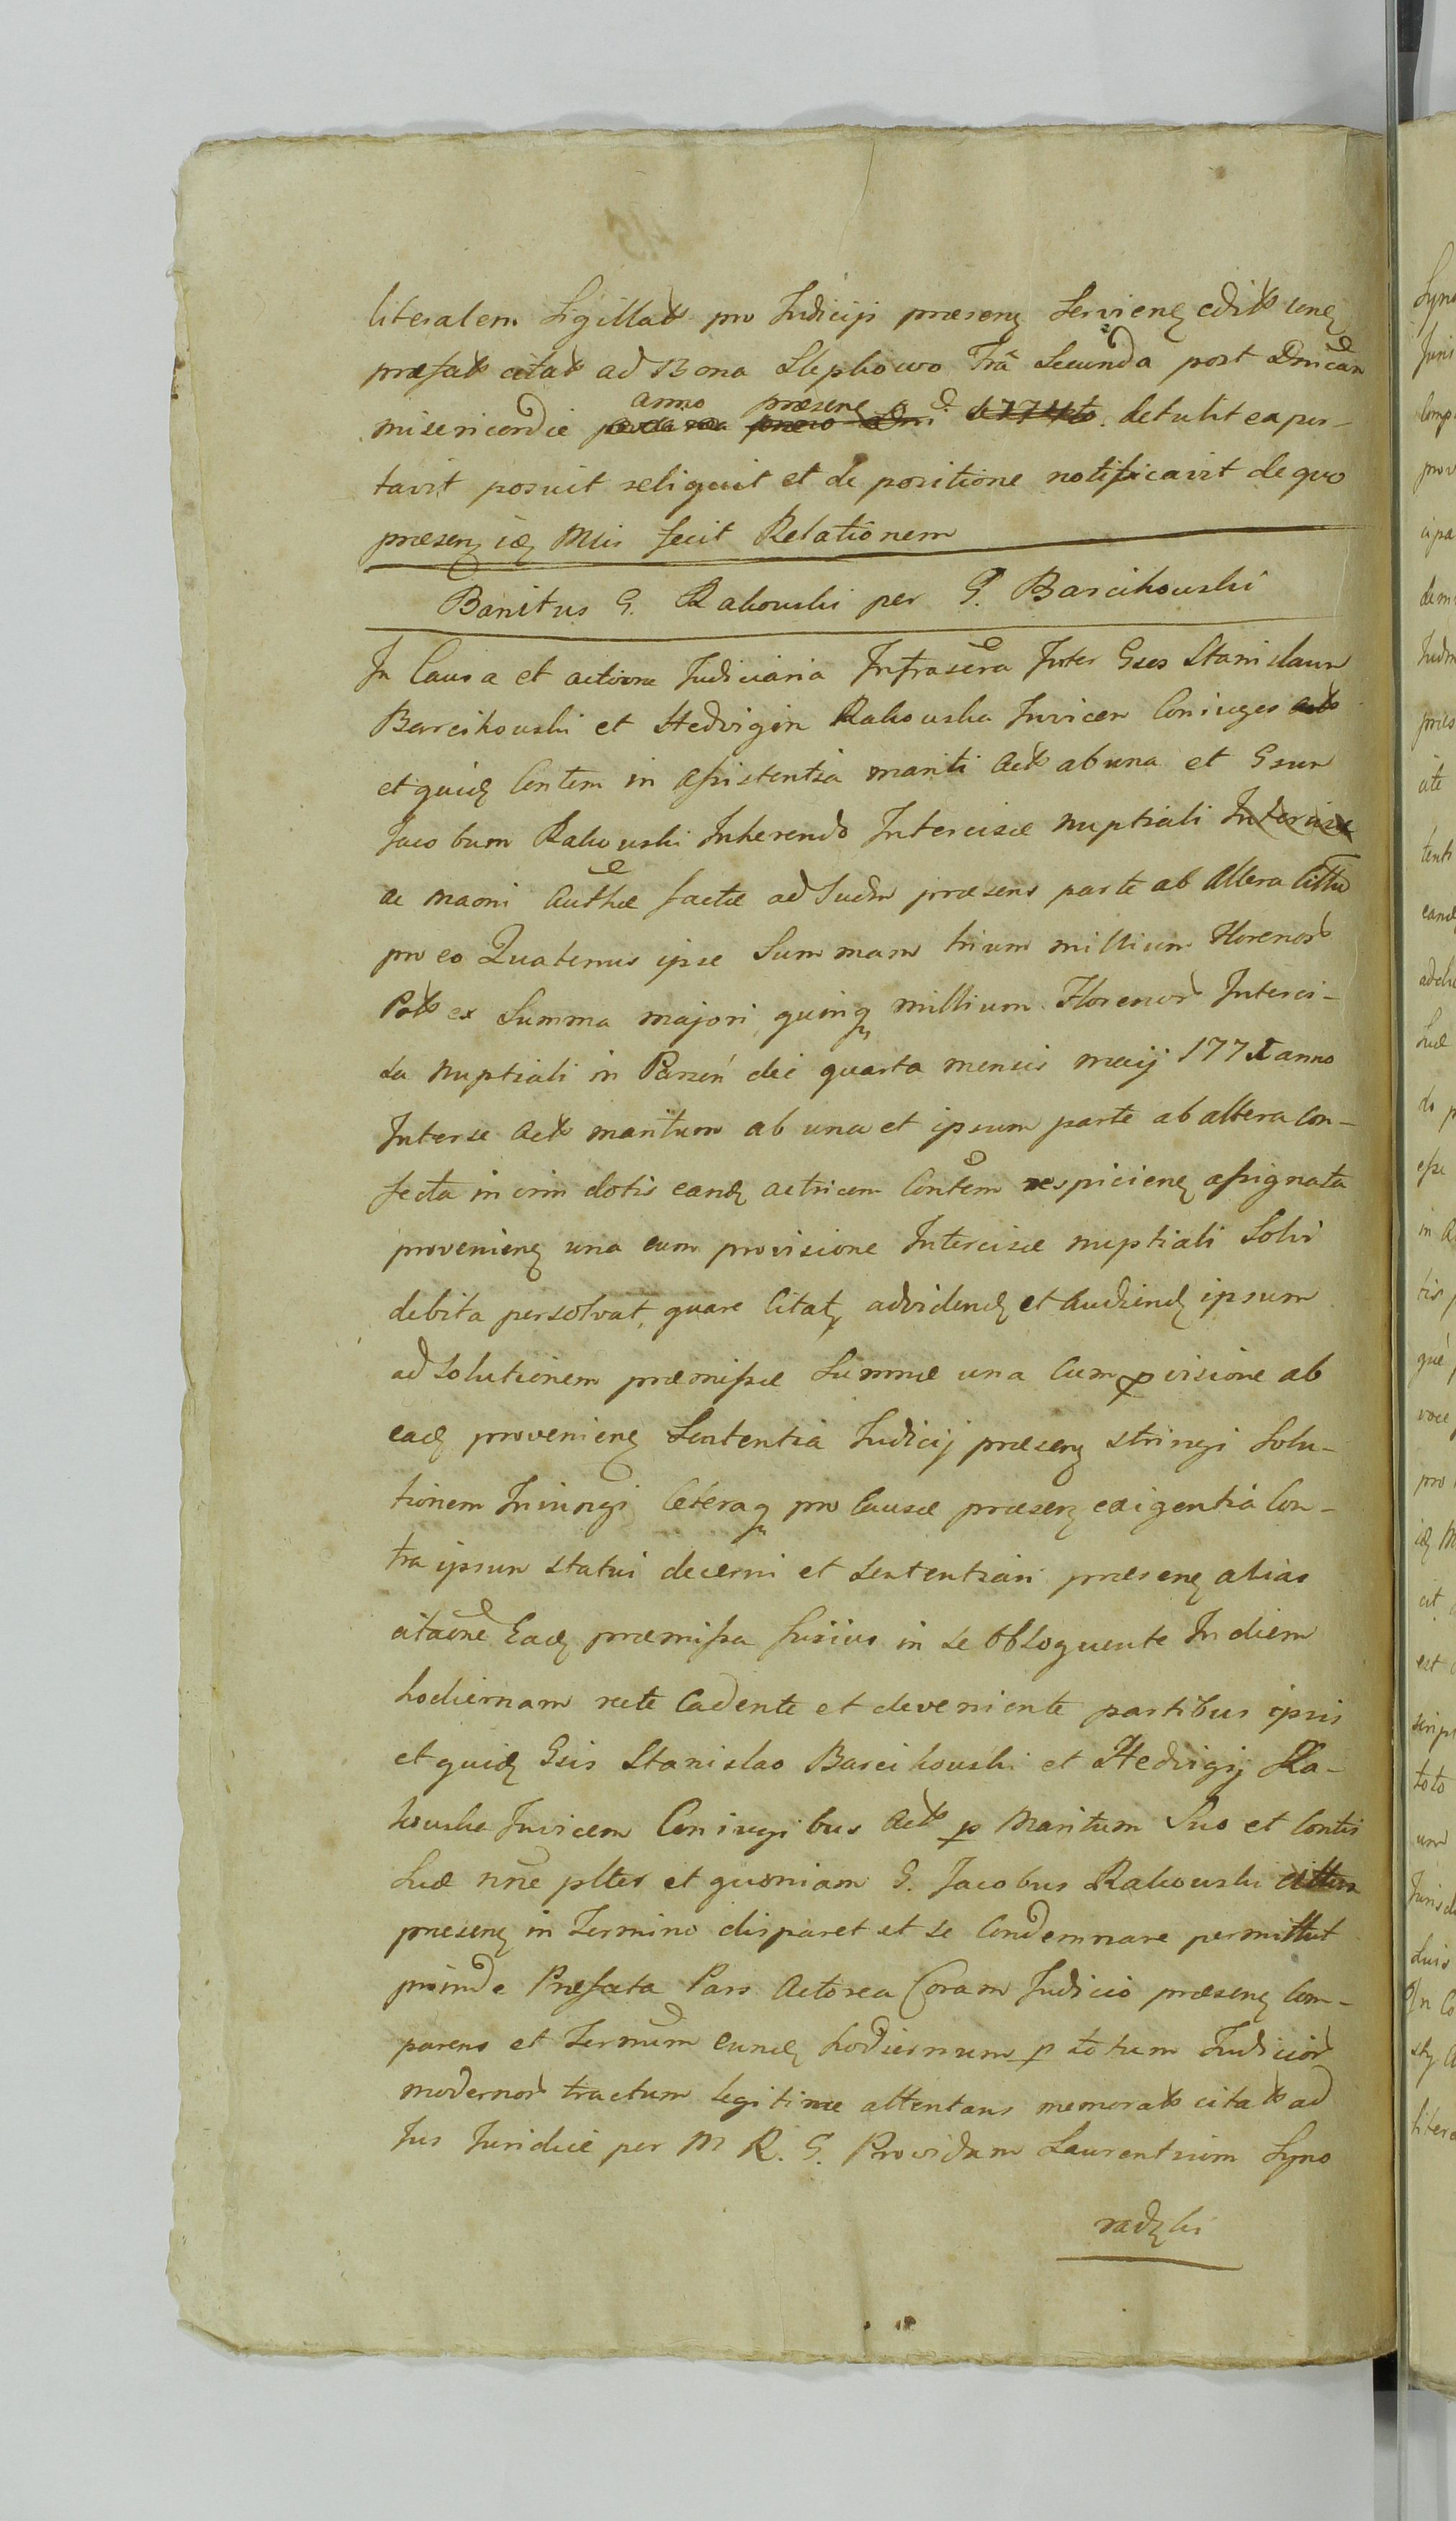 literalem Sigillat pro Judicij præsenz Servienz edit Conz
præfat citat ad Bona Slepkowo Fra Secunda post Dnicam
misericordie anno præsenz detulit expor-
tavit posuit reliquit et de positione notificavit de quo
præsenz idz Mis fecit Relationem
Banitus G. Rakowski per G. Barcikowski
In Causa et actione Judiciaria Infrascra Inter Gsos Stanislaum
Barcikowski et Hedvigin Rakowska Invicem Coniuges
et quidz Contem in assistentia mariti Act ab una et Gsum
Jacobum Rakowski Inherendo Intercisæ nuptiali
ac maoni Authæ factæ ad Judm præsens parte ab Altera Cittu
pro eo Quatenus ipse Summam trium millium Florenor
Pol ex Summa majori quinq millium Florenor Interci-
sa nuptiali in Parzeń die quarta mensis maij 1771 anno
Inter se Act maritum ab una et ipsum parte ab altera con-
fecta in vim dotis eandz actricem Contem respicienz assignata
provenienz una cum provisione Intercisæ nuptiali Solvi
debita persolvat, quare Citatz ad videndz et Audiendz ipsum
ad Solutionem præmissæ Summæ una Cum pvisione ab
eadz provenienz Sententia Judicij præsenz stringi Solu-
tionem Iniungi Ceteraq pro Causæ præsenz exigentia Con-
tra ipsum statui decerni et sententiari præsenz alias
citaone Eadz præmissa fusius in se obloquente In diem
hodiernam recte Cadente et deveniente partibus ipsis
et quidz Gsis Stanislao Barcikowski et Hedvigij Ra-
kowska Invicem Coniugibus Act p Maritum Suo et Contis
Suæ nne pltes et quoniam G. Jacobus Rakowski
præsenz in Termino disparet et se Condemnare permittit
proinde Præfata Pars Actorea Coram Judicio præsenz Com-
parens et Termnum eundz hodiernum p totum Judicior
modernor tractum legitime attentans memorat citat ad
Jus Juridice per M R. G. Providum Laurentium Syno
radzki